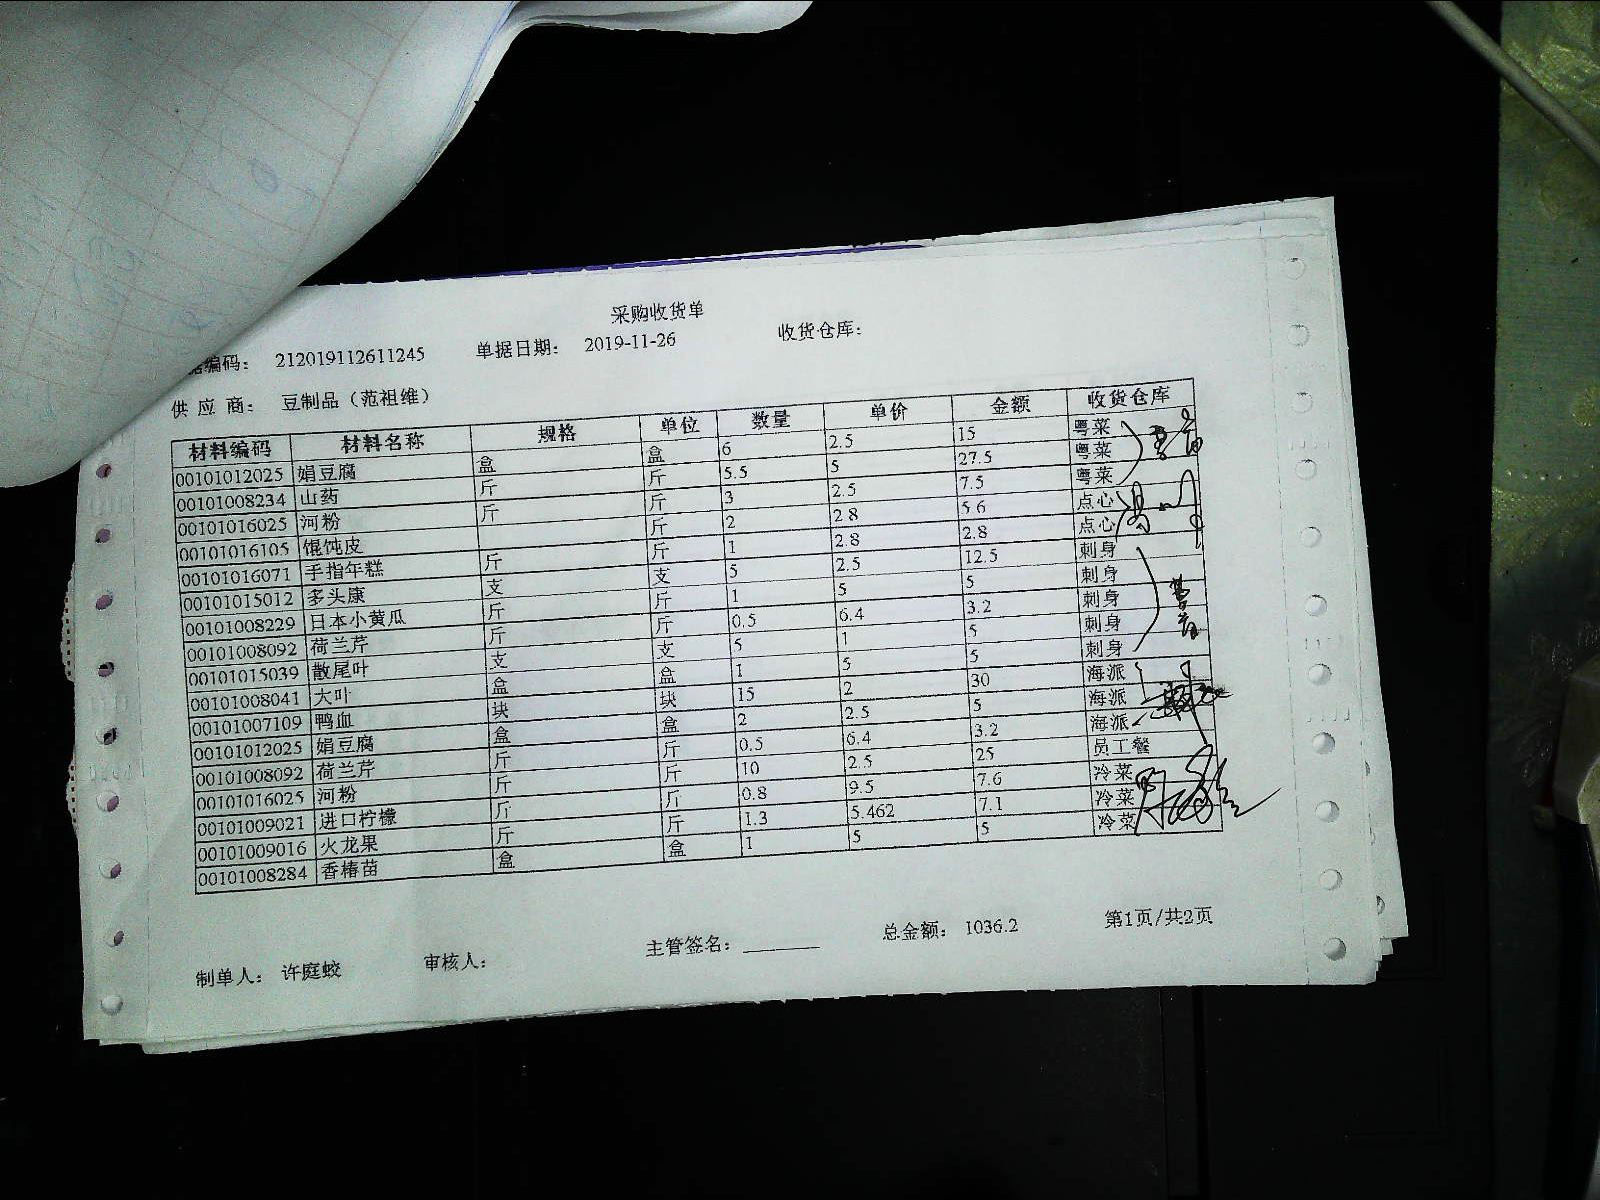 采购收货单
编码： 212019112611245 单据日期： 2019-11-26 收货仓库：
供 应 商： 豆制品（范祖维）
材料编码 材料名称 规格 单位 数量 单价 金额 收货仓库
00101012025 娟豆腐 盒 盒 6 2.5 15 粤菜
00101008234 山药 斤 斤 5.5 5 27.5 粤菜
00101016025 河粉 斤 斤 3 2.5 7.5 粤菜
00101016105 馄饨皮 斤 2 2.8 5.6 点心
00101016071 手指年糕 斤 斤 1 2.8 2.8 点心
00101015012 多头康 支 支 5 2.5 12.5 刺身
00101008229 日本小黄瓜 斤 斤 1 5 5 刺身
00101008092 荷兰芹 斤 斤 0.5 6.4 3.2 刺身
00101015039 散尾叶 支 支 5 1 5 刺身
00101008041 大叶 盒 盒 1 5 5 刺身
00101007109 鸭血 块 块 15 2 30 海派
00101012025 娟豆腐 盒 盒 2 2.5 5 海派
00101008092 荷兰芹 斤 斤 0.5 6.4 3.2 海派
00101016025 河粉 斤 斤 10 2.5 25 员工餐
00101009021 进口柠檬 斤 斤 0.8 9.5 7.6 冷菜
00101009016 火龙果 斤 斤 1.3 5.462 7.1 冷菜
00101008284 香椿苗 盒 盒 1 5 5 冷菜
制单人： 许庭蛟 审核人： 主管签名： 总金额： 1036.2 第1页/共2页